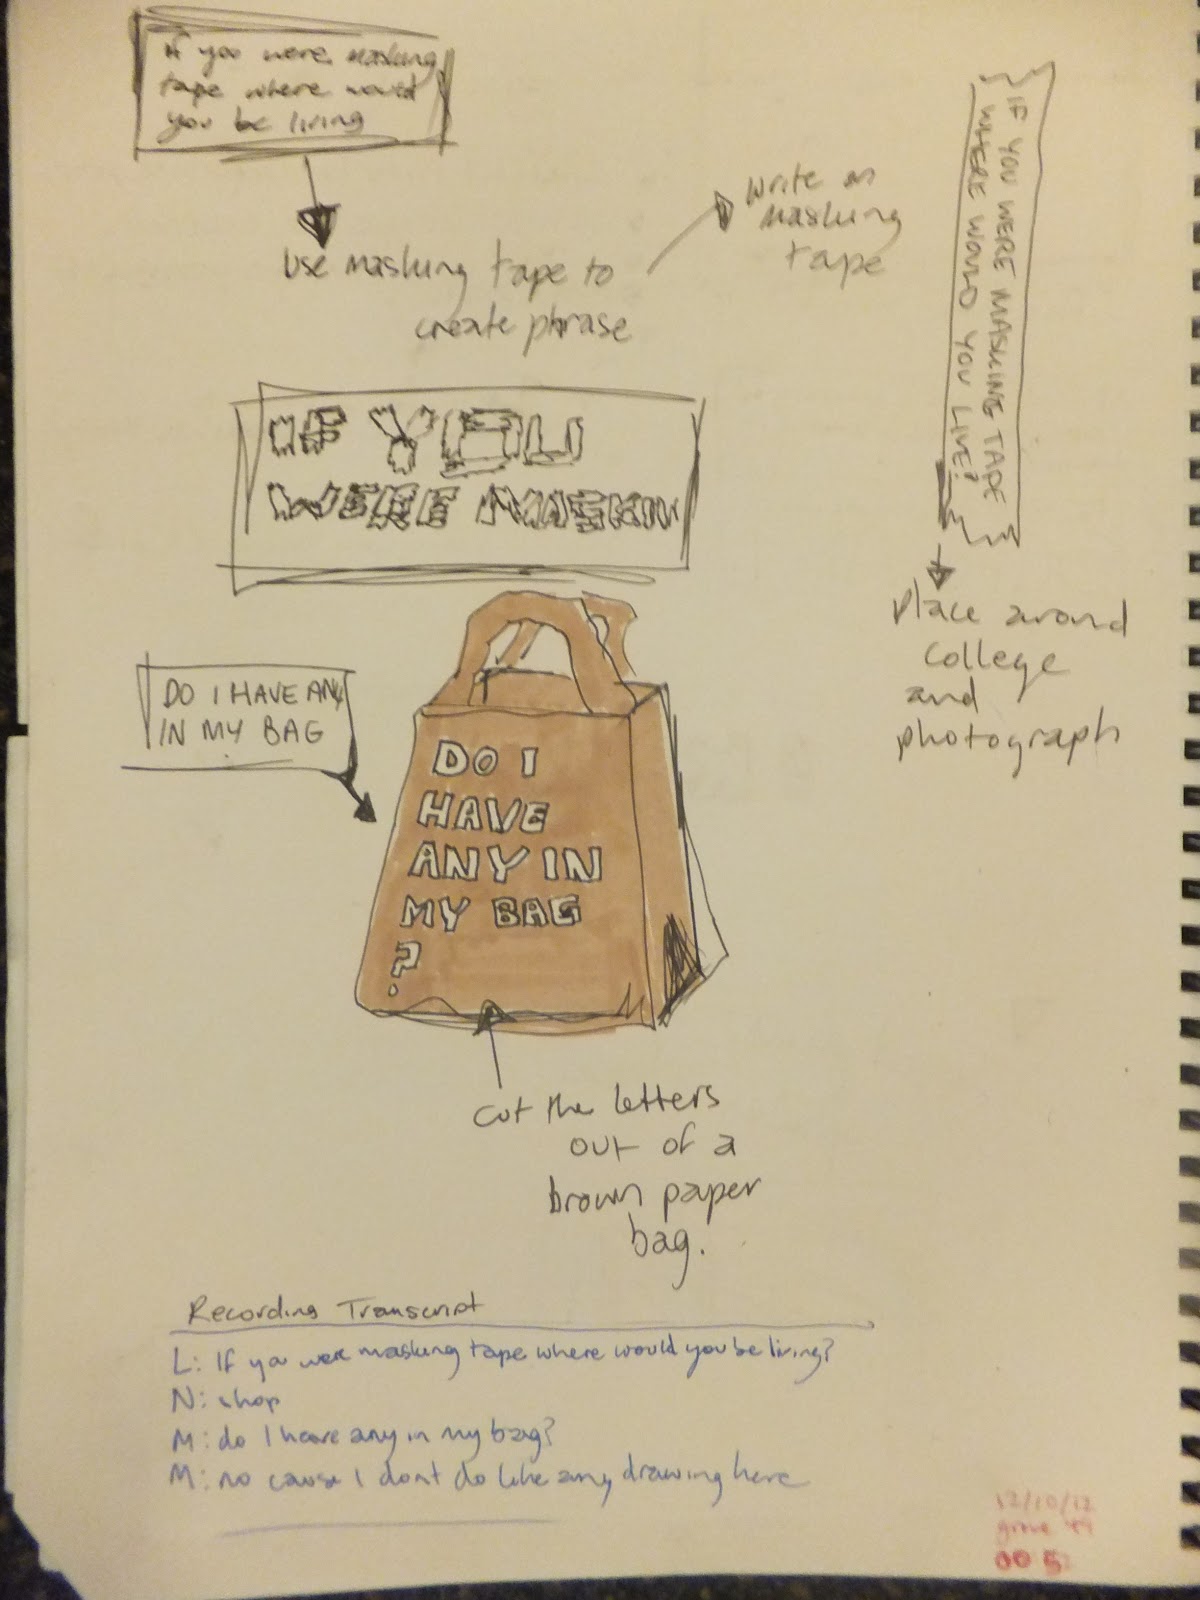 If you were masking
tape where would
you be living
use masking tape to
create phrase
write on
masking
tape
IF YOU WERE MASKING TAPE
WHERE WOULD YOU LIVE?
Place around
college
and
photograph
IF YOU
WERE MASKIN
DO I HAVE ANY
IN MY BAG
DO I
HAVE
ANY IN
MY BAG
?
cut the letters
out of a
brown paper
bag.
Recording Transcript
L: If you were masking tape where would you be living?
N: shop
M: do I have any in my bag?
M: no cause I dont do like any drawing here
12/10/12
00 5